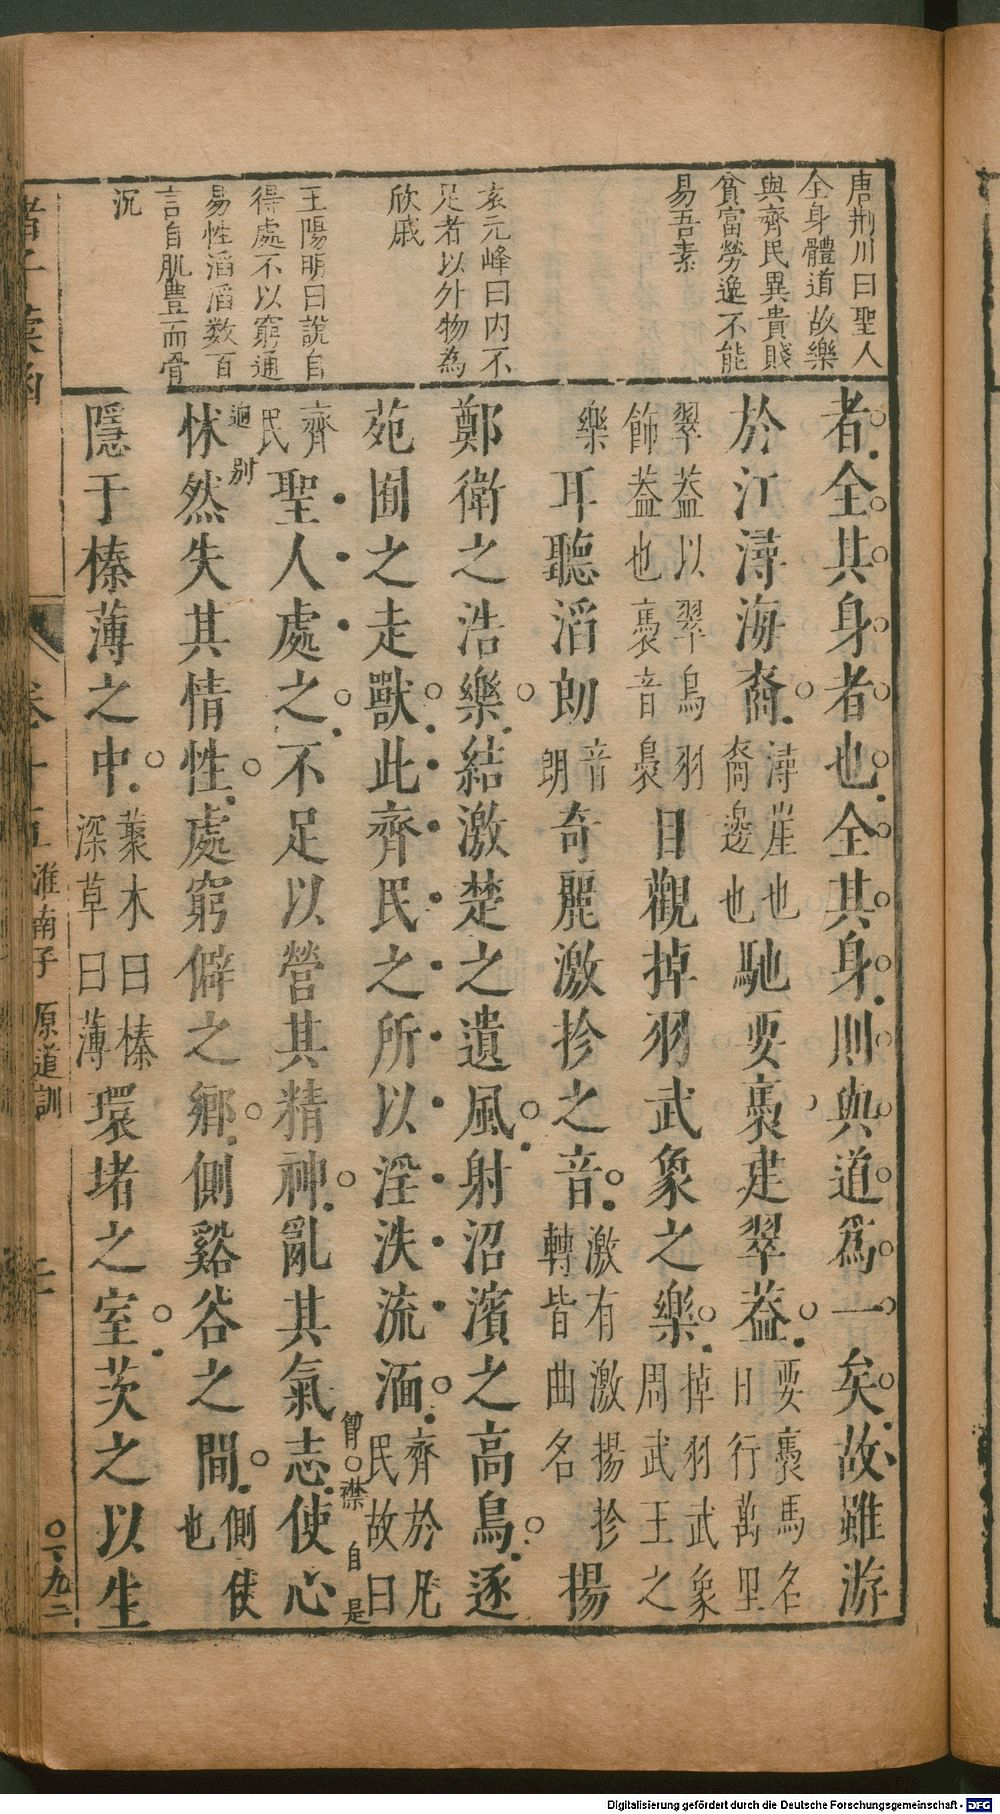 唐荆川曰聖人
全身體道故樂
與齊民異貴賤
貧富勞逸不能
易吾素
袁元峰曰内不
足者以外物為
欣戚
王陽明曰說自
得處不以窮通
易性滔滔数百
言自肌豊而骨
沉
者全其身者也全其身則與道爲一矣故雖游
於江潯海裔潯崖也裔邊也馳要褭建翠葢要褭馬名日行萬里
翠葢以翠鳥羽飾葢也褭音裊目觀掉羽武象之樂掉羽武象周武王之
樂耳聽滔朗音朗奇麗激抮之音激有激揚抮轉皆曲名揚
鄭衛之浩樂結激楚之遺風射沼濱之高鳥逐
苑囿之走獸此齊民之所以淫泆流湎齊於凡民故曰
齊民聖人處之不足以營其精神亂其氣志使心
怵然失其情性處窮僻之鄉側谿谷之間側伎也
隱于榛薄之中藂木曰榛深草曰薄環堵之室茨之以生
迥别
曾○襟自是
諸子彙函
卷十五
淮南子 原道訓
二
○一九二
Digitalisierung gefördert durch die Deutsche Forschungsgemeinschaft - DFG